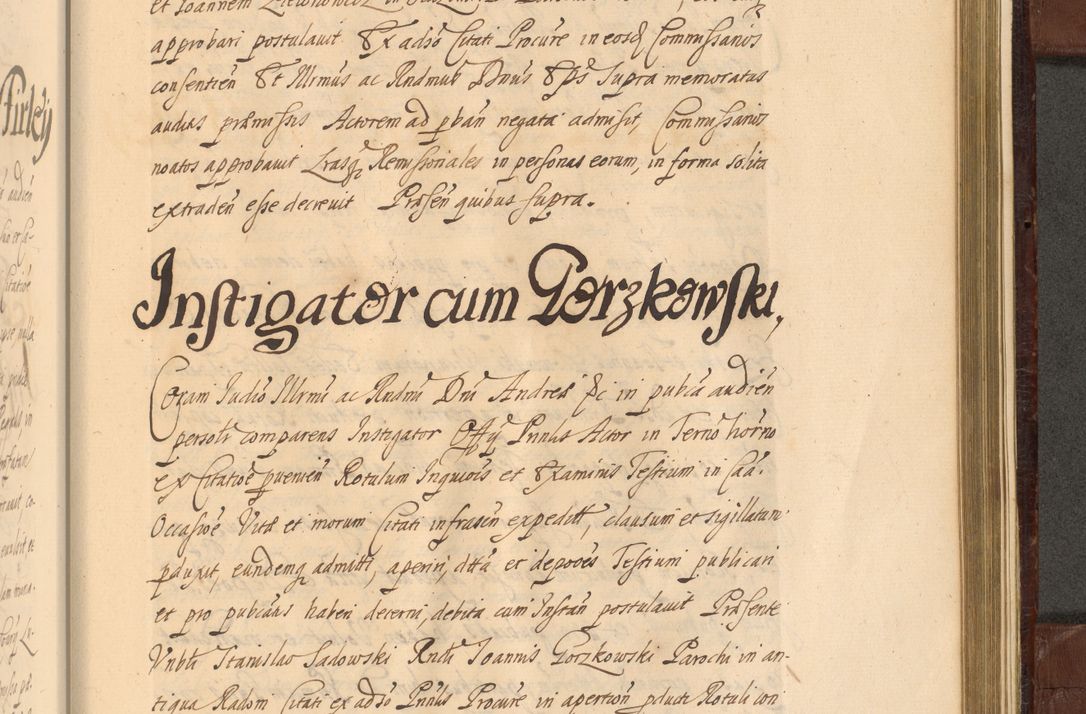 approbari postulavit Et ex adso Citati Procure in eosdē Commissarios
consentien̄ Et Illrmus ac Rndmus Dnus Eps supra memoratus
auditis præmissis Actorem ad pban negata admisit, Commissarios
noatos approbavit Lrasq Remissoriales in personas eorum, in forma solita
extraden̄ esse decrevit Præsen̄ quibus supra.
Instigator cum Gorzkowski,
Coram Judio Illrmi ac Rndmi Dni Andreæ &c in publca audien̄
personlr comparens Instigator Offij Pnntis Actor in Terno horno
ex Citatiōe pvenien̄ Rotulum Inquiōis et Examinis Testium in Caā.
Occasiōe Vitæ et morum Citati infrascn̄ expedit, clausum et sigillatum
pduxit, eundemq admitti, aperiri, dicta et deposōes Testium publicari
et pro publicatis haberi decerni, debita cum Instan̄ postulavit Præsente
Vnbli Stanislao Sadowski Rndi Joannis Gorzkowski Parochi in an-
tiqua Radom Citati ex adso Pnntis Procure in apertion̄ pducti Rotuli con